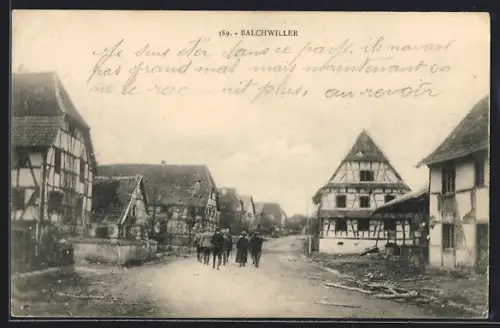 389. - BALCHWILLER
Je suis eter dans ce pays, ils navait
pas grand mal mais maintenant on
ne le reconait plus, au revoir